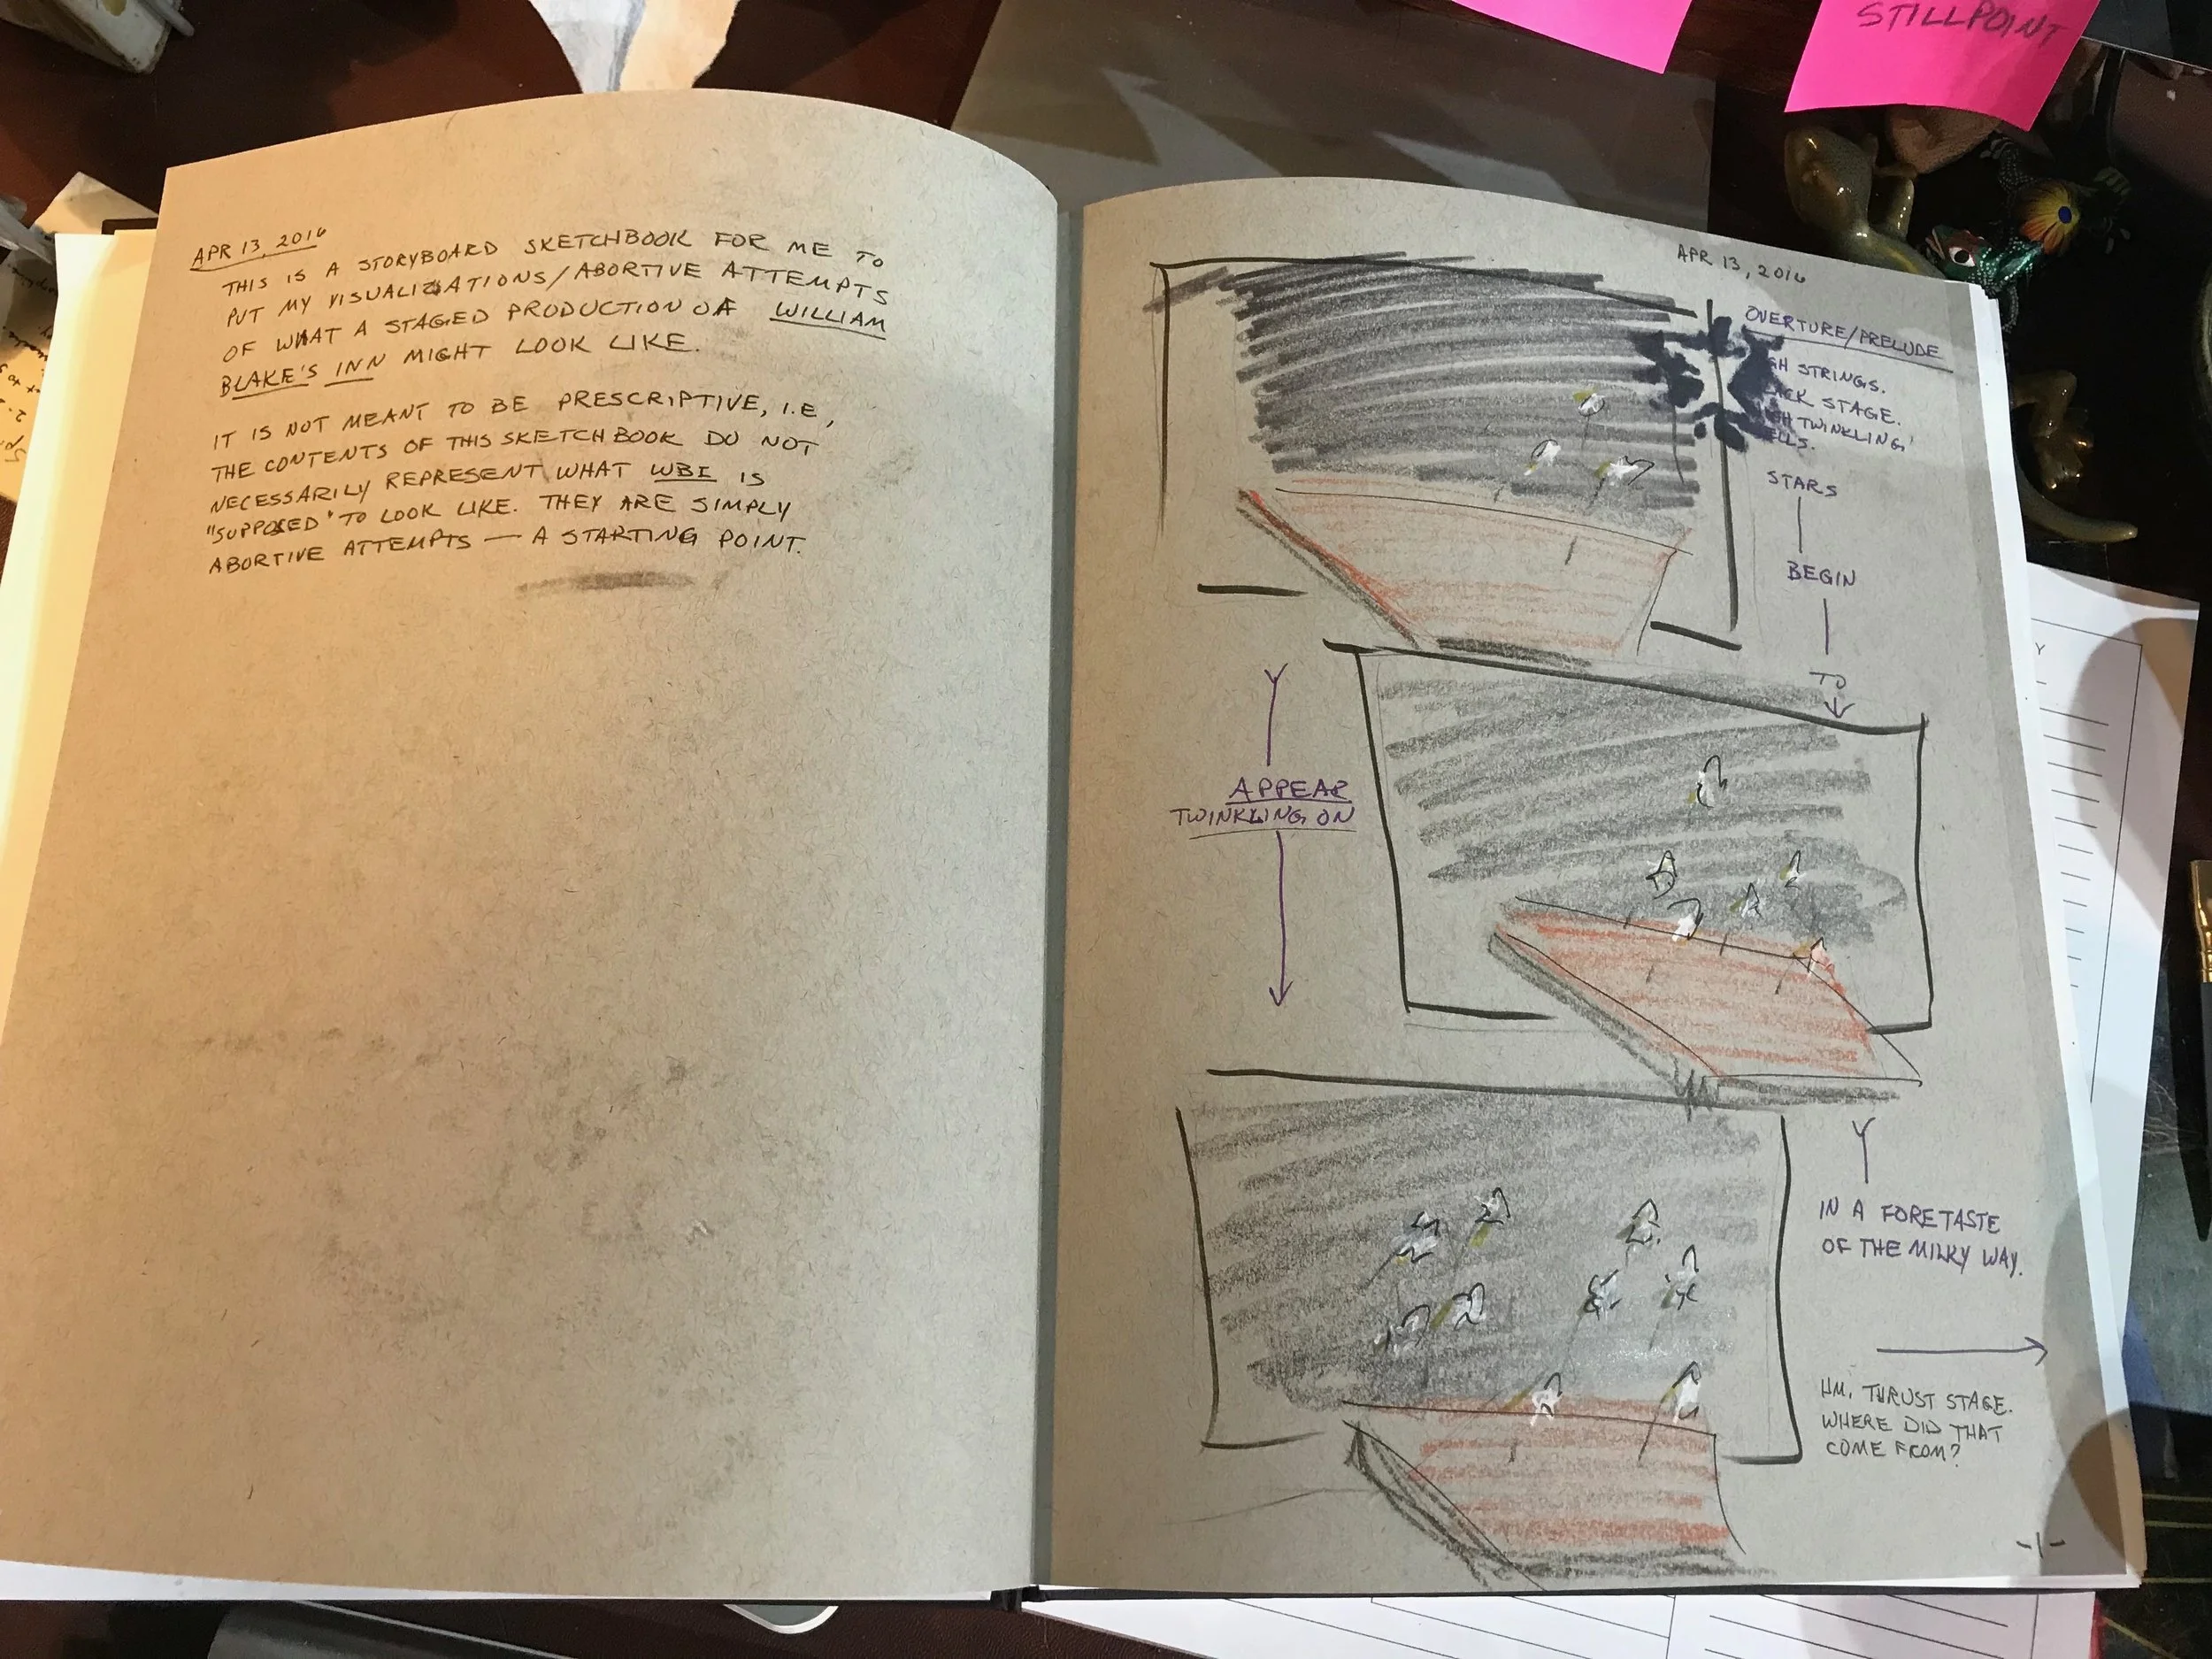 STILLPOINT
APR 13, 2016
THIS IS A STORYBOARD SKETCHBOOK FOR ME TO
PUT MY VISUALIZATIONS/ABORTIVE ATTEMPTS
OF WHAT A STAGED PRODUCTION OF WILLIAM
BLAKE'S INN MIGHT LOOK LIKE.
IT IS NOT MEANT TO BE PRESCRIPTIVE, I.E.,
THE CONTENTS OF THIS SKETCHBOOK DO NOT
NECESSARILY REPRESENT WHAT WBI IS
"SUPPOSED" TO LOOK LIKE. THEY ARE SIMPLY
ABORTIVE ATTEMPTS — A STARTING POINT.
APR 13, 2016
OVERTURE/PRELUDE
STRINGS.
STAGE.
TWINKLING
STARS
BEGIN
TO
APPEAR
TWINKLING ON
IN A FORETASTE
OF THE MILKY WAY.
HM. THRUST STAGE.
WHERE DID THAT
COME FROM?
-1-